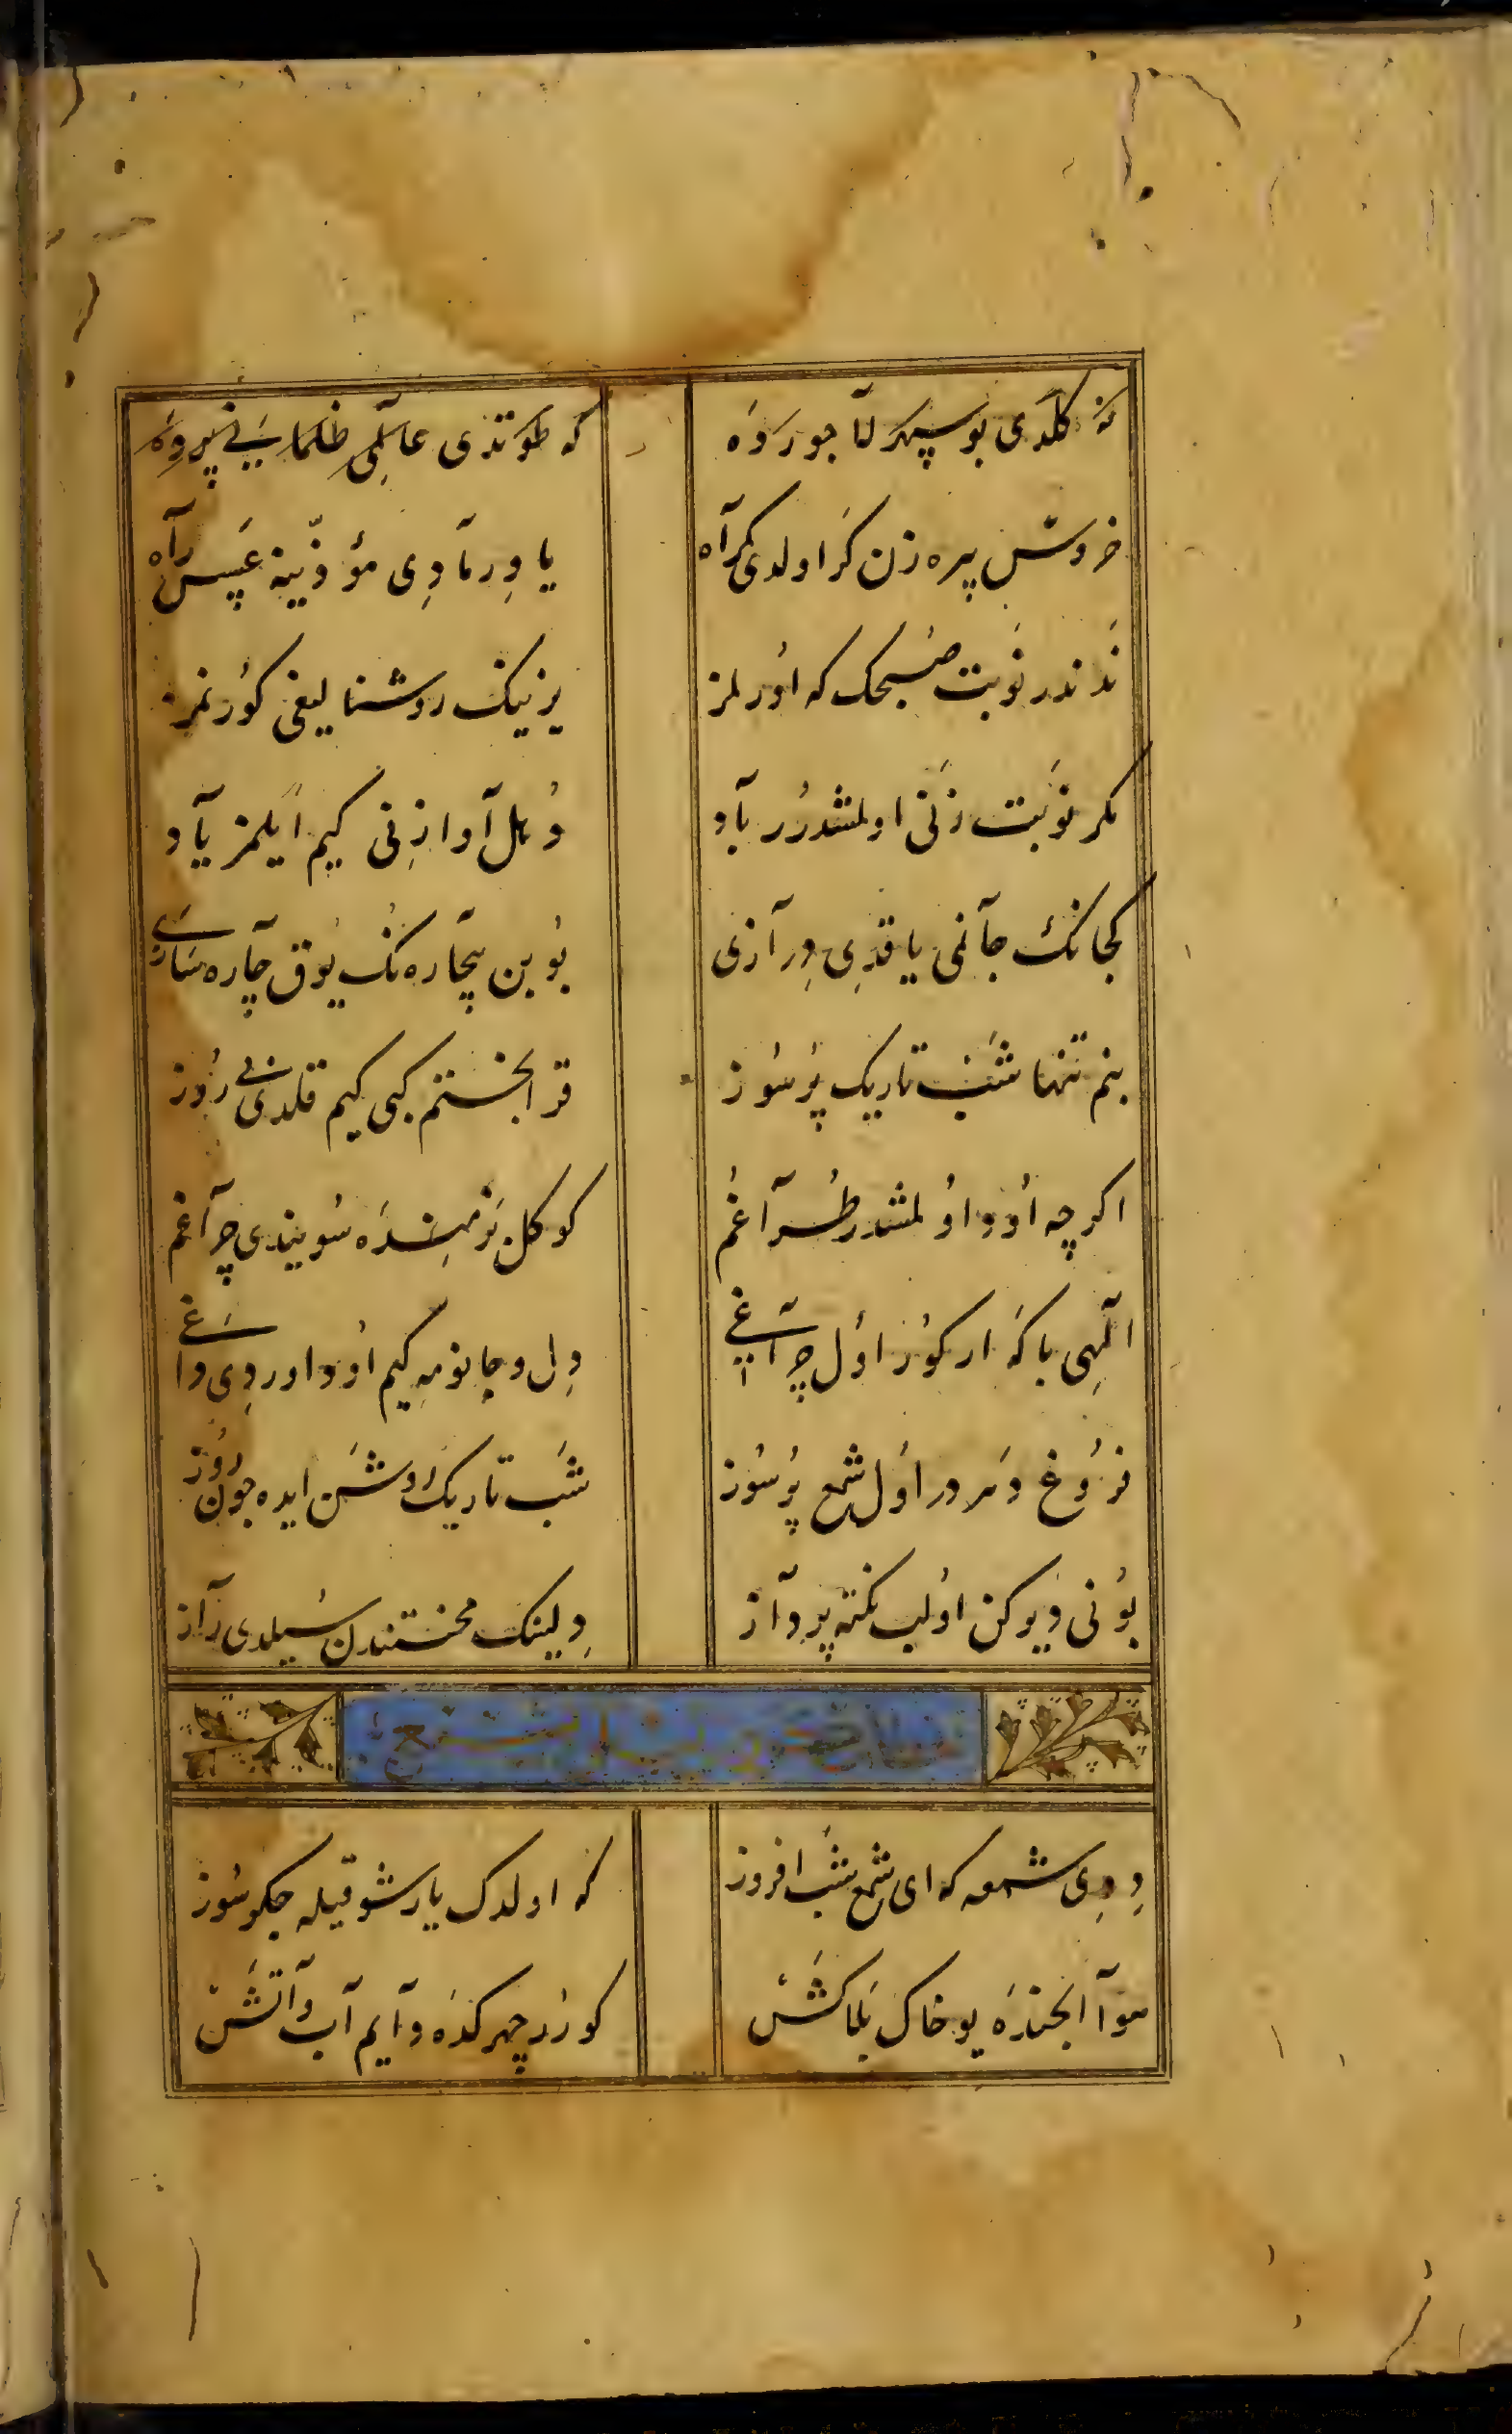 نه کلدی بو سپهر لاجوردَه
که طوتدی عالمی ظلمانی پرده
خروس پیره زن کر اولدی کمراه
یا ویرمادی مؤذنینه عسس راه
نَدَندر نَوبت صبحک که اُورلمز
یزنیک روشنالیغی کورنمز
مکر نَوبت زَنی اولمشدُرُر باد
دُهل آوازِنی کیم اَیلمز یاد
کجانک جانمی یاقدِی دِرازی
بُو بن بیچاره‌نک یُوق چاره سازی
بنم تنها شَب تاریک پُرسُوز
قرا بختم کبی کیم قلدی بی رُوز
اکرچه اُود اُولمشدر طُراغُم
کوکل بزمِنده سُویندی چراغم
الٓهِی باکَه ارکوُر اوُل چراغی
دِل و جانومِه کیم اوُد اوردِی داغی
فرُوغ ویَرور اوُل شمع پرسُوز
شَب تاریک روشَن ایده جون روُز
بوُنی دیوکن اوُلب نکته پرداز
دِلینک محنتندن سُیلدی راز
دِدِی شمعه که ای شمع شَب افروز
که اولدک یار شوقیله جکرسُوز
هوا الجنده یو خاک بلاکَش
کوزُر چهرکده دایم آب و آتَش